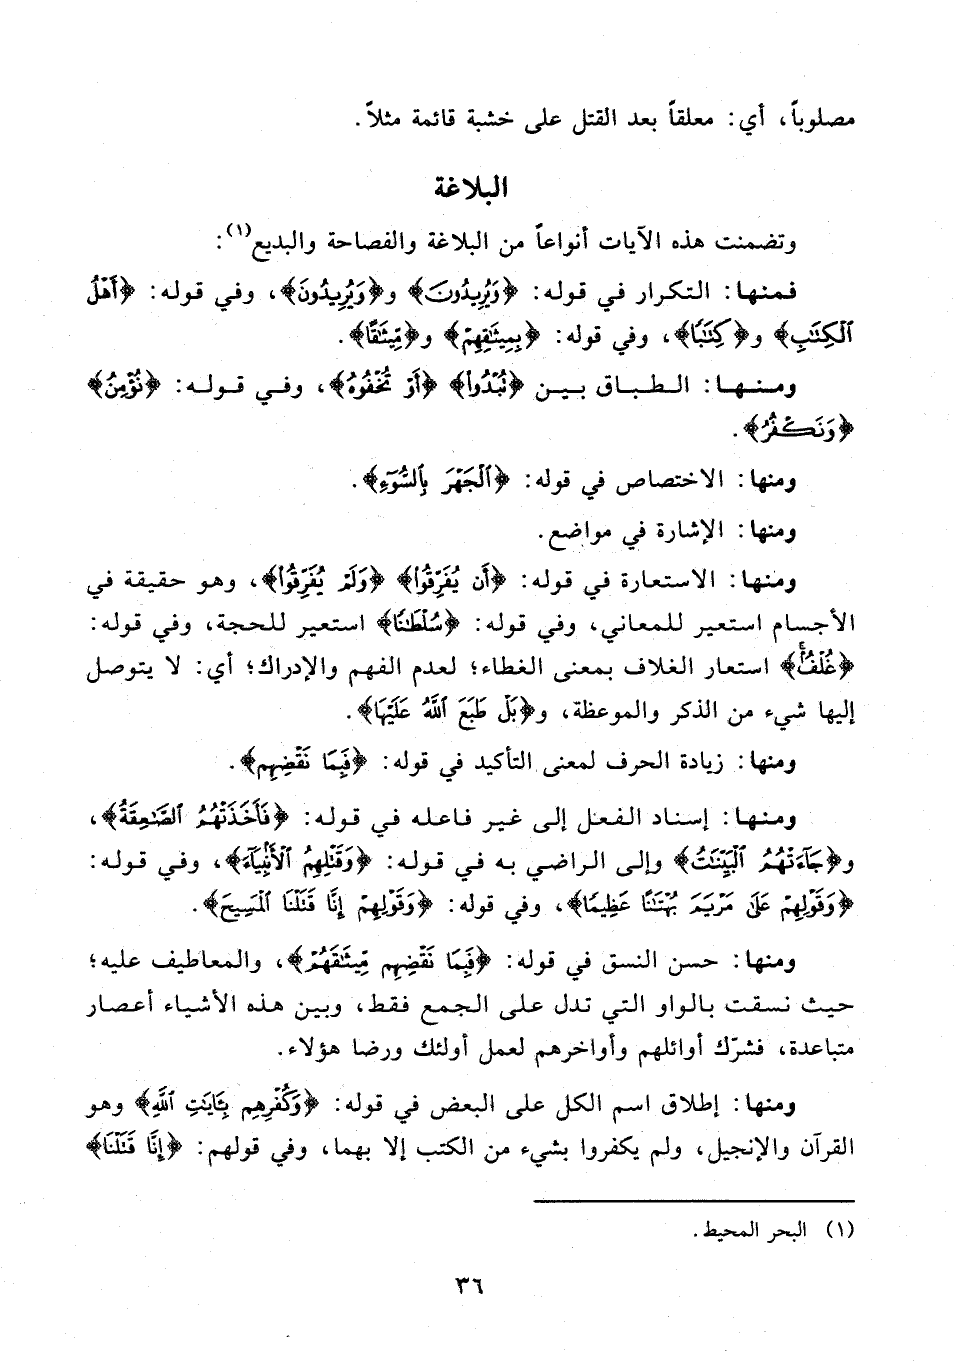 مصلوباً، أي: معلقاً بعد القتل على خشبة قائمة مثلاً.
البلاغة
وتضمنت هذه الآيات أنواعاً من البلاغة والفصاحة والبديع(١):
فمنها: التكرار في قوله: ﴿وَيُرِيدُونَ﴾ و﴿وَيُرِيدُونَ﴾، وفي قوله: ﴿أَهْلُ
ٱلْكِتَٰبِ﴾ و﴿كِتَٰبًا﴾، وفي قوله: ﴿بِمِيثَٰقِهِمْ﴾ و﴿مِّيثَٰقًا﴾.
ومنها: الطباق بين ﴿تُبْدُوا۟﴾ ﴿أَوْ تُخْفُوهُ﴾، وفي قوله: ﴿نُؤْمِنُ﴾
﴿وَنَكْفُرُ﴾.
ومنها: الاختصاص في قوله: ﴿ٱلْجَهْرَ بِٱلسُّوٓءِ﴾.
ومنها: الإشارة في مواضع.
ومنها: الاستعارة في قوله: ﴿أَن يُفَرِّقُوا۟﴾ ﴿وَلَمْ يُفَرِّقُوا۟﴾، وهو حقيقة في
الأجسام استعير للمعاني، وفي قوله: ﴿سُلْطَٰنًا﴾ استعير للحجة، وفي قوله:
﴿غُلْفٌۢ﴾ استعار الغلاف بمعنى الغطاء؛ لعدم الفهم والإدراك؛ أي: لا يتوصل
إليها شيء من الذكر والموعظة، و﴿بَلْ طَبَعَ ٱللَّهُ عَلَيْهَا﴾.
ومنها: زيادة الحرف لمعنى التأكيد في قوله: ﴿فَبِمَا نَقْضِهِم﴾.
ومنها: إسناد الفعل إلى غير فاعله في قوله: ﴿فَأَخَذَتْهُمُ ٱلصَّٰعِقَةُ﴾،
و﴿جَآءَتْهُمُ ٱلْبَيِّنَٰتُ﴾ وإلى الراضي به في قوله: ﴿وَقَتْلِهِمُ ٱلْأَنۢبِيَآءَ﴾، وفي قوله:
﴿وَقَوْلِهِمْ عَلَىٰ مَرْيَمَ بُهْتَٰنًا عَظِيمًا﴾، وفي قوله: ﴿وَقَوْلِهِمْ إِنَّا قَتَلْنَا ٱلْمَسِيحَ﴾.
ومنها: حسن النسق في قوله: ﴿فَبِمَا نَقْضِهِم مِّيثَٰقَهُمْ﴾، والمعاطيف عليه؛
حيث نسقت بالواو التي تدل على الجمع فقط، وبين هذه الأشياء أعصار
متباعدة، فشرّك أوائلهم وأواخرهم لعمل أولئك ورضا هؤلاء.
ومنها: إطلاق اسم الكل على البعض في قوله: ﴿وَكُفْرِهِم بِـَٔايَٰتِ ٱللَّهِ﴾ وهو
القرآن والإنجيل، ولم يكفروا بشيء من الكتب إلا بهما، وفي قولهم: ﴿إِنَّا قَتَلْنَا﴾
(١) البحر المحيط.
٣٦